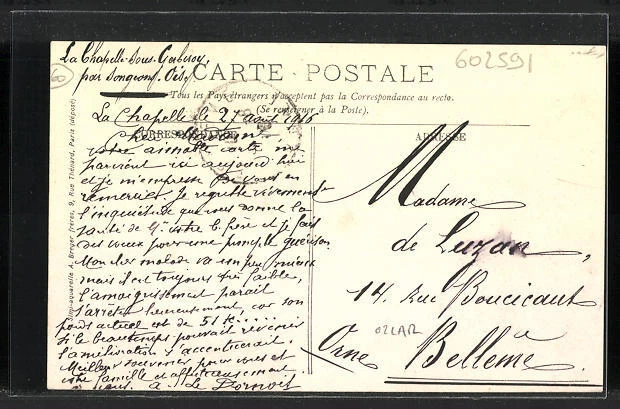 La Chapelle-sous-Gerberoy,
par Songeons. Oise
60
602591
CARTE POSTALE
Tous les Pays étrangers n'acceptent pas la Correspondance au recto.
(Se renseigner à la Poste).
La Chapelle le 27 août
CORRESPONDANCE
ADRESSE
votre aimable carte me
parvient ici aujourd'hui
et je m'empresse de vous en
remercier. Je regrette vivement
l'inquiétude que vous donne la
santé de votre b. frère et je fais
des vœux pour une prompte guérison.
Mon cher malade va un peu mieux
mais il est toujours très faible,
l'amaigrissement paraît
s'arrêter heureusement car son
poids actuel est de 51 K....
Si le beau temps pouvait revenir
l'amélioration s'accentuerait.
Meilleurs souvenirs pour vous et
votre famille et affectueusement
à vous. A. Le
Madame
de Luzan,
14, rue Boucicaut
Bellême
Orne
02LAR
Imp-aquarelle A. Breger frères, 9, Rue Thénard, Paris (déposé)